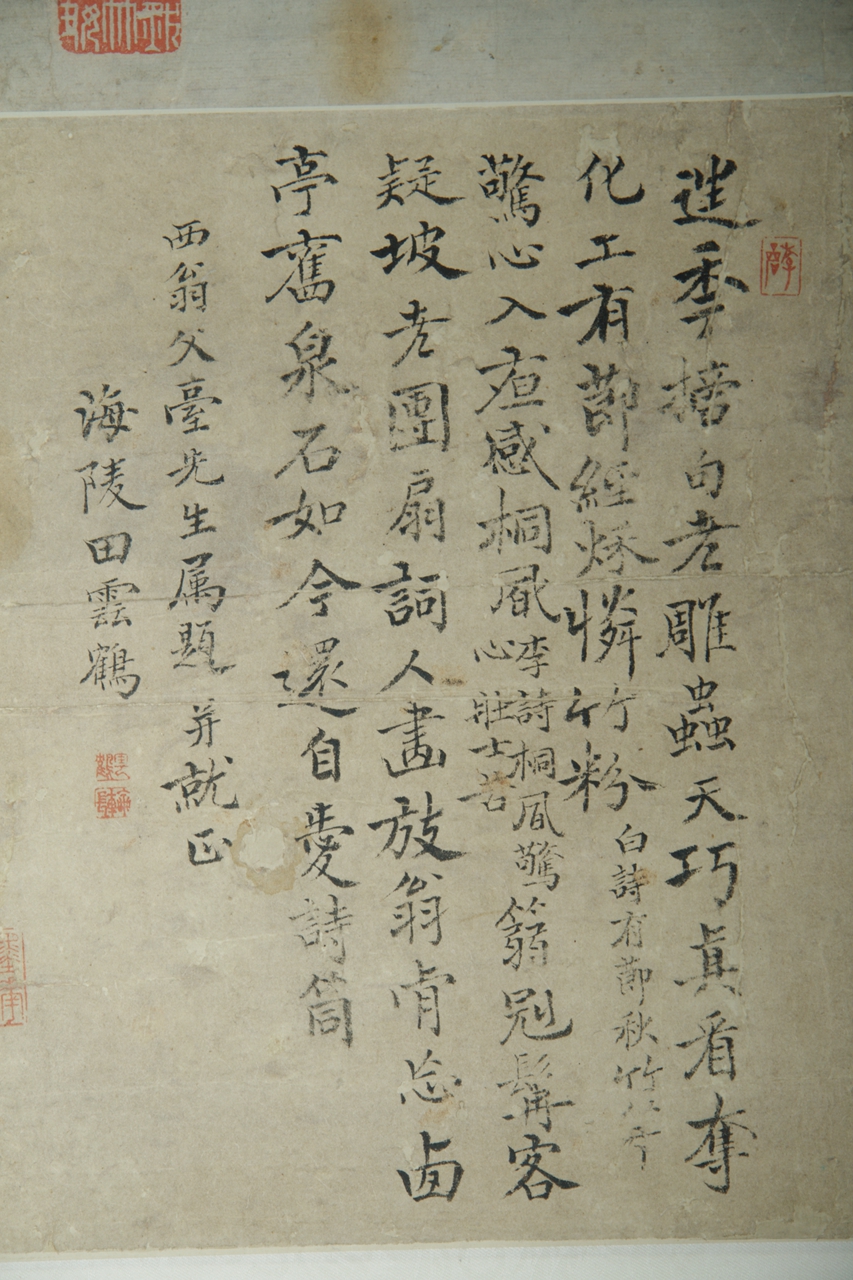 秊句老雕蟲天巧真看奪
化工有莭經烁憐竹粉白詩有莭秋竹
驚心入亱感桐凬李詩桐凬驚心壯士苦篛冠髯客
疑坡老團扇詞人畫放翁肯忘卣
亭舊泉石如今還自愛詩筒
西翁父臺先生属題并就正
海陵田雲鶴